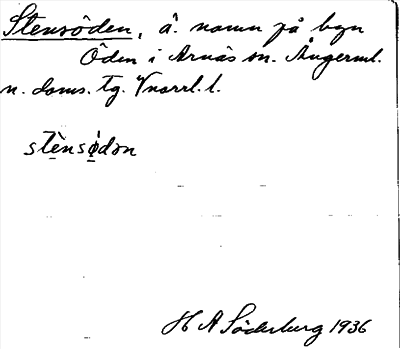 Stensöden, ä. namn på byn
Öden i Arnäs sn. Ångerml.
n. doms. tg. Vnorrl. l.
stènsø̀dən
H A Söderburg 1936